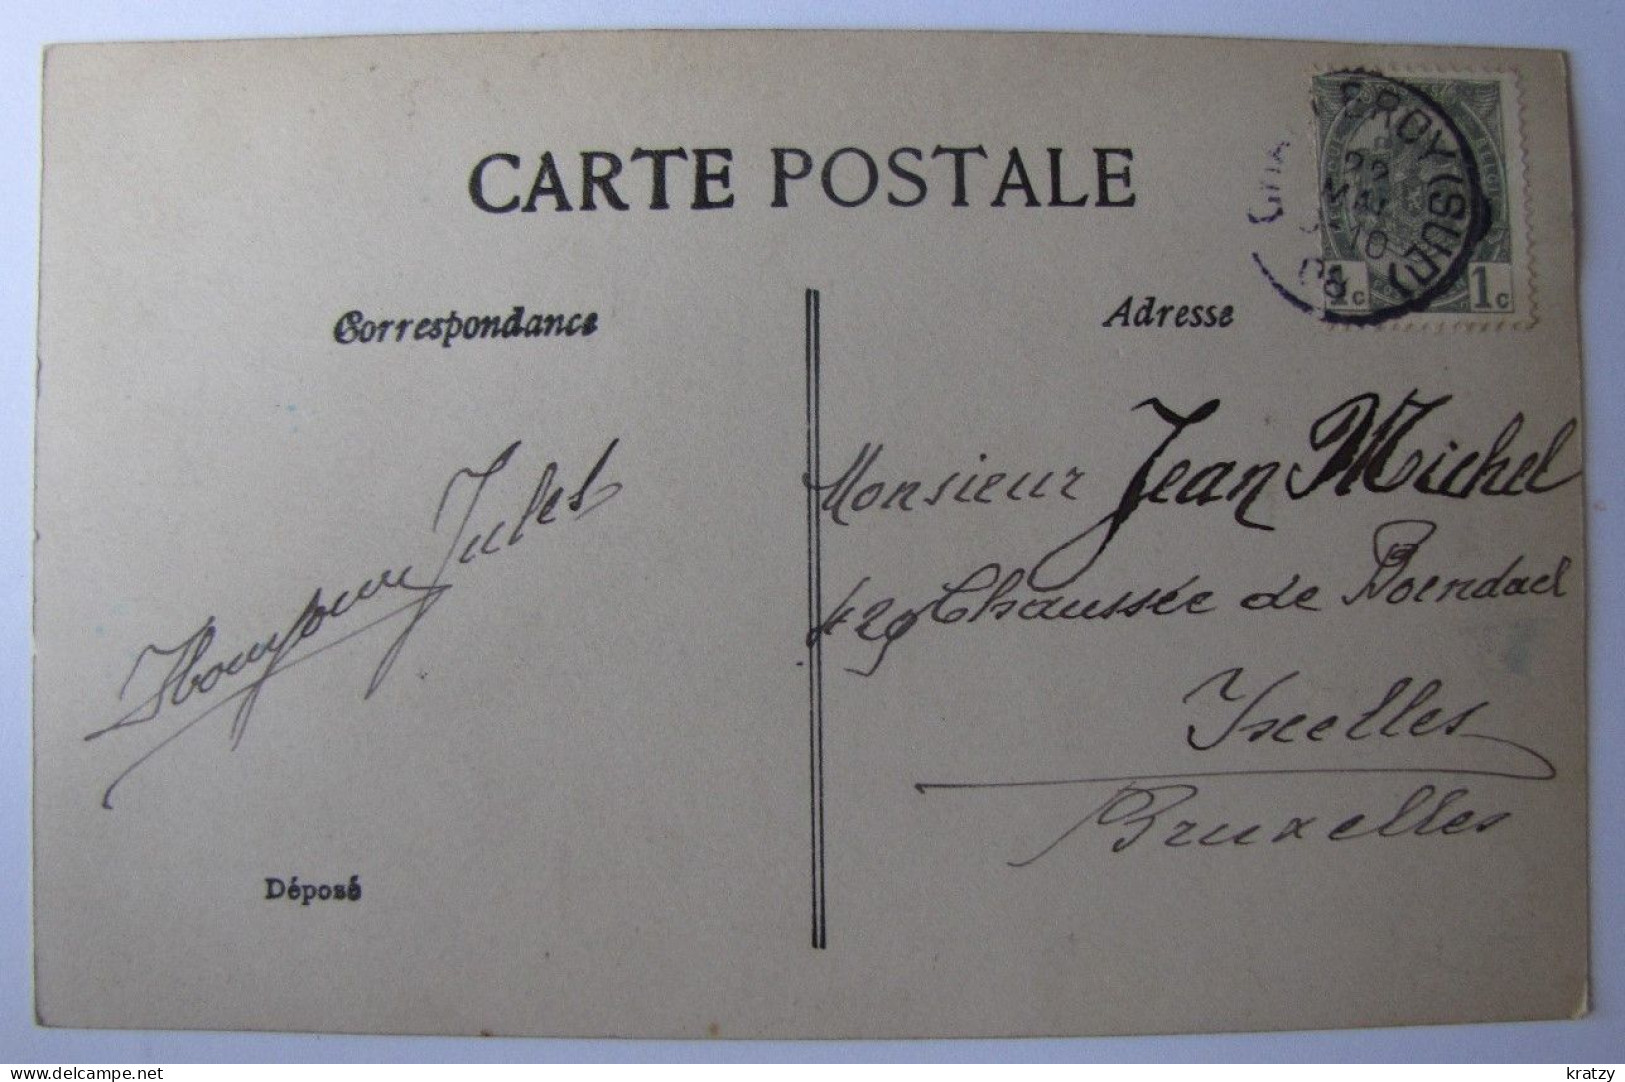 CARTE POSTALE
Correspondance
Adresse
CHARLEROY (SUD)
22
MAI
10
08
1c 1c
Jules
Monsieur Jean Michel
429 Chaussée de Boendael
Ixelles
Bruxelles
Déposé
kratzy
delcampe.net